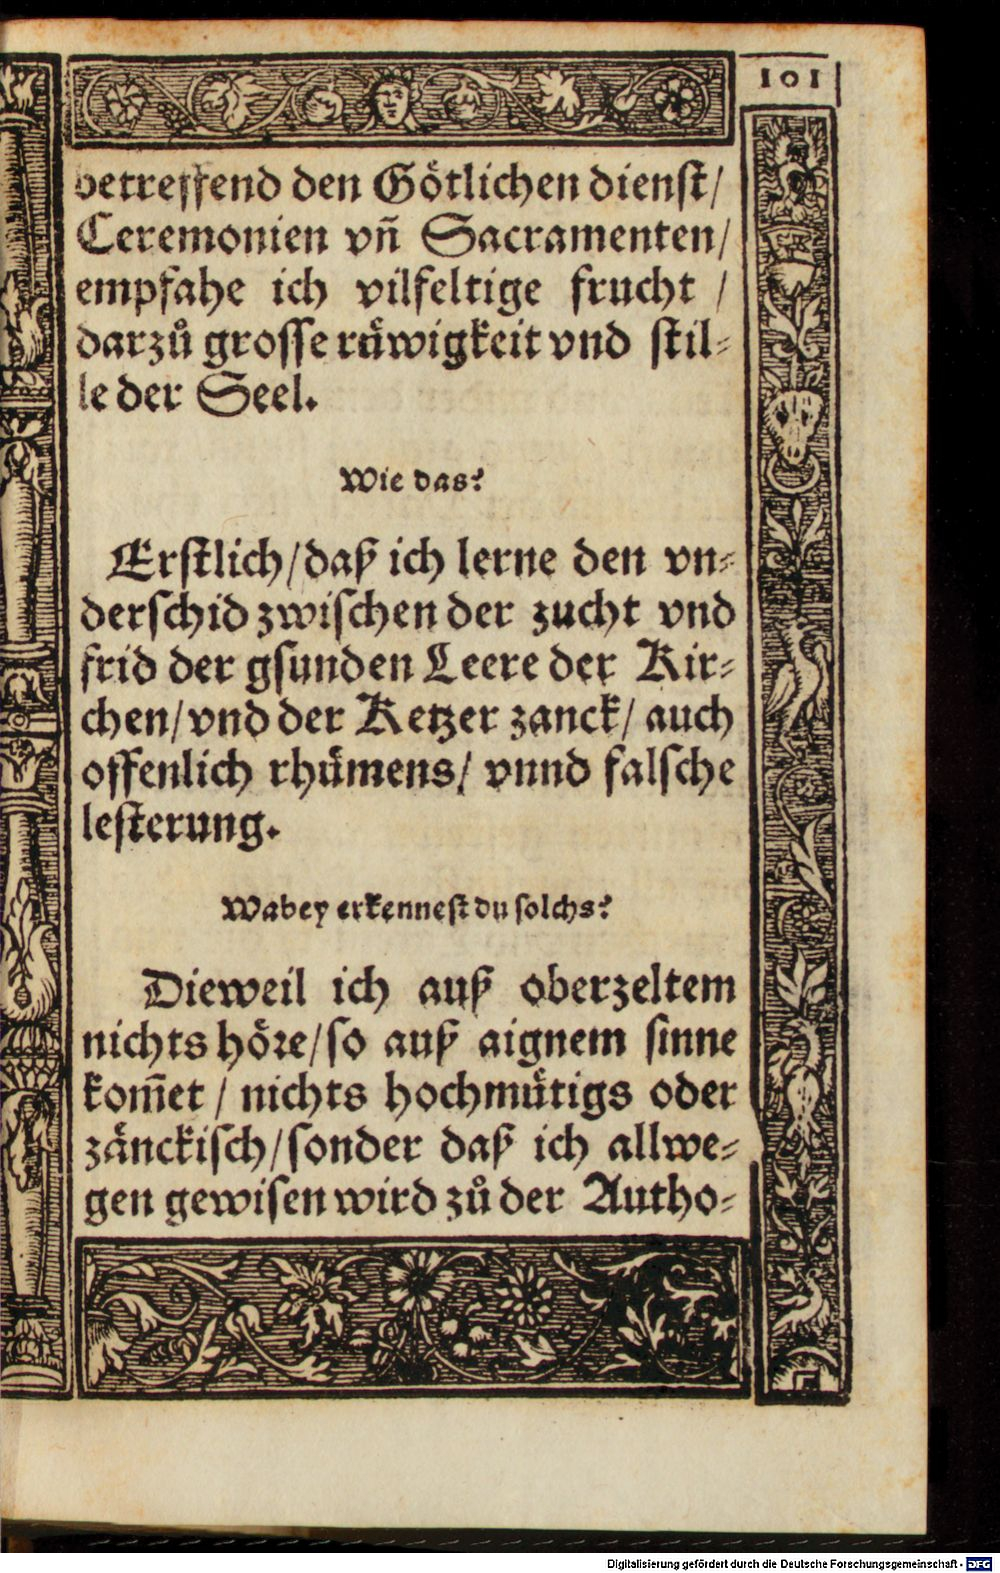 101
betreffend den Goͤtlichen dienſt/
Ceremonien vñ Sacramenten/
empfahe ich vilfeltige frucht /
darzuͦ groſſe ruͤwigkeit vnd ſtil⸗
le der Seel.
Wie das?
Erſtlich/daß ich lerne den vn⸗
derſchid zwiſchen der zucht vnd
frid der gſunden Leere der Kir⸗
chen/vnd der Ketzer zanck/ auch
offenlich rhuͤmens/ vnnd falſche
leſterung.
Wabey erkenneſt du ſolchs?
Dieweil ich auß oberzeltem
nichts hoͤꝛe/ſo auß aignem ſinne
kom̃et / nichts hochmuͤtigs oder
zaͤnckiſch/ſonder daß ich allwe⸗
gen gewiſen wird zuͦ der Autho⸗
Digitalisierung gefördert durch die Deutsche Forschungsgemeinschaft - DFG